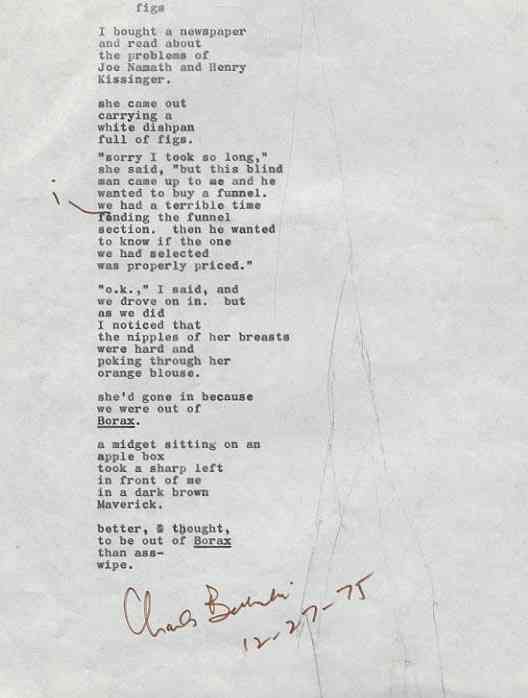 figs
I bought a newspaper
and read about
the problems of
Joe Namath and Henry
Kissinger.
she came out
carrying a
white dishpan
full of figs.
"sorry I took so long,"
she said, "but this blind
man came up to me and he
i
wanted to buy a funnel.
we had a terrible time
finding the funnel
section.  then he wanted
to know if the one
we had selected
was properly priced."
"o.k.," I said, and
we drove on in.  but
as we did
I noticed that
the nipples of her breasts
were hard and
poking through her
orange blouse.
she'd gone in because
we were out of
Borax.
a midget sitting on an
apple box
took a sharp left
in front of me
in a dark brown
Maverick.
better, I thought,
to be out of Borax
than ass-
wipe.
Charles Bukowski
12-27-75